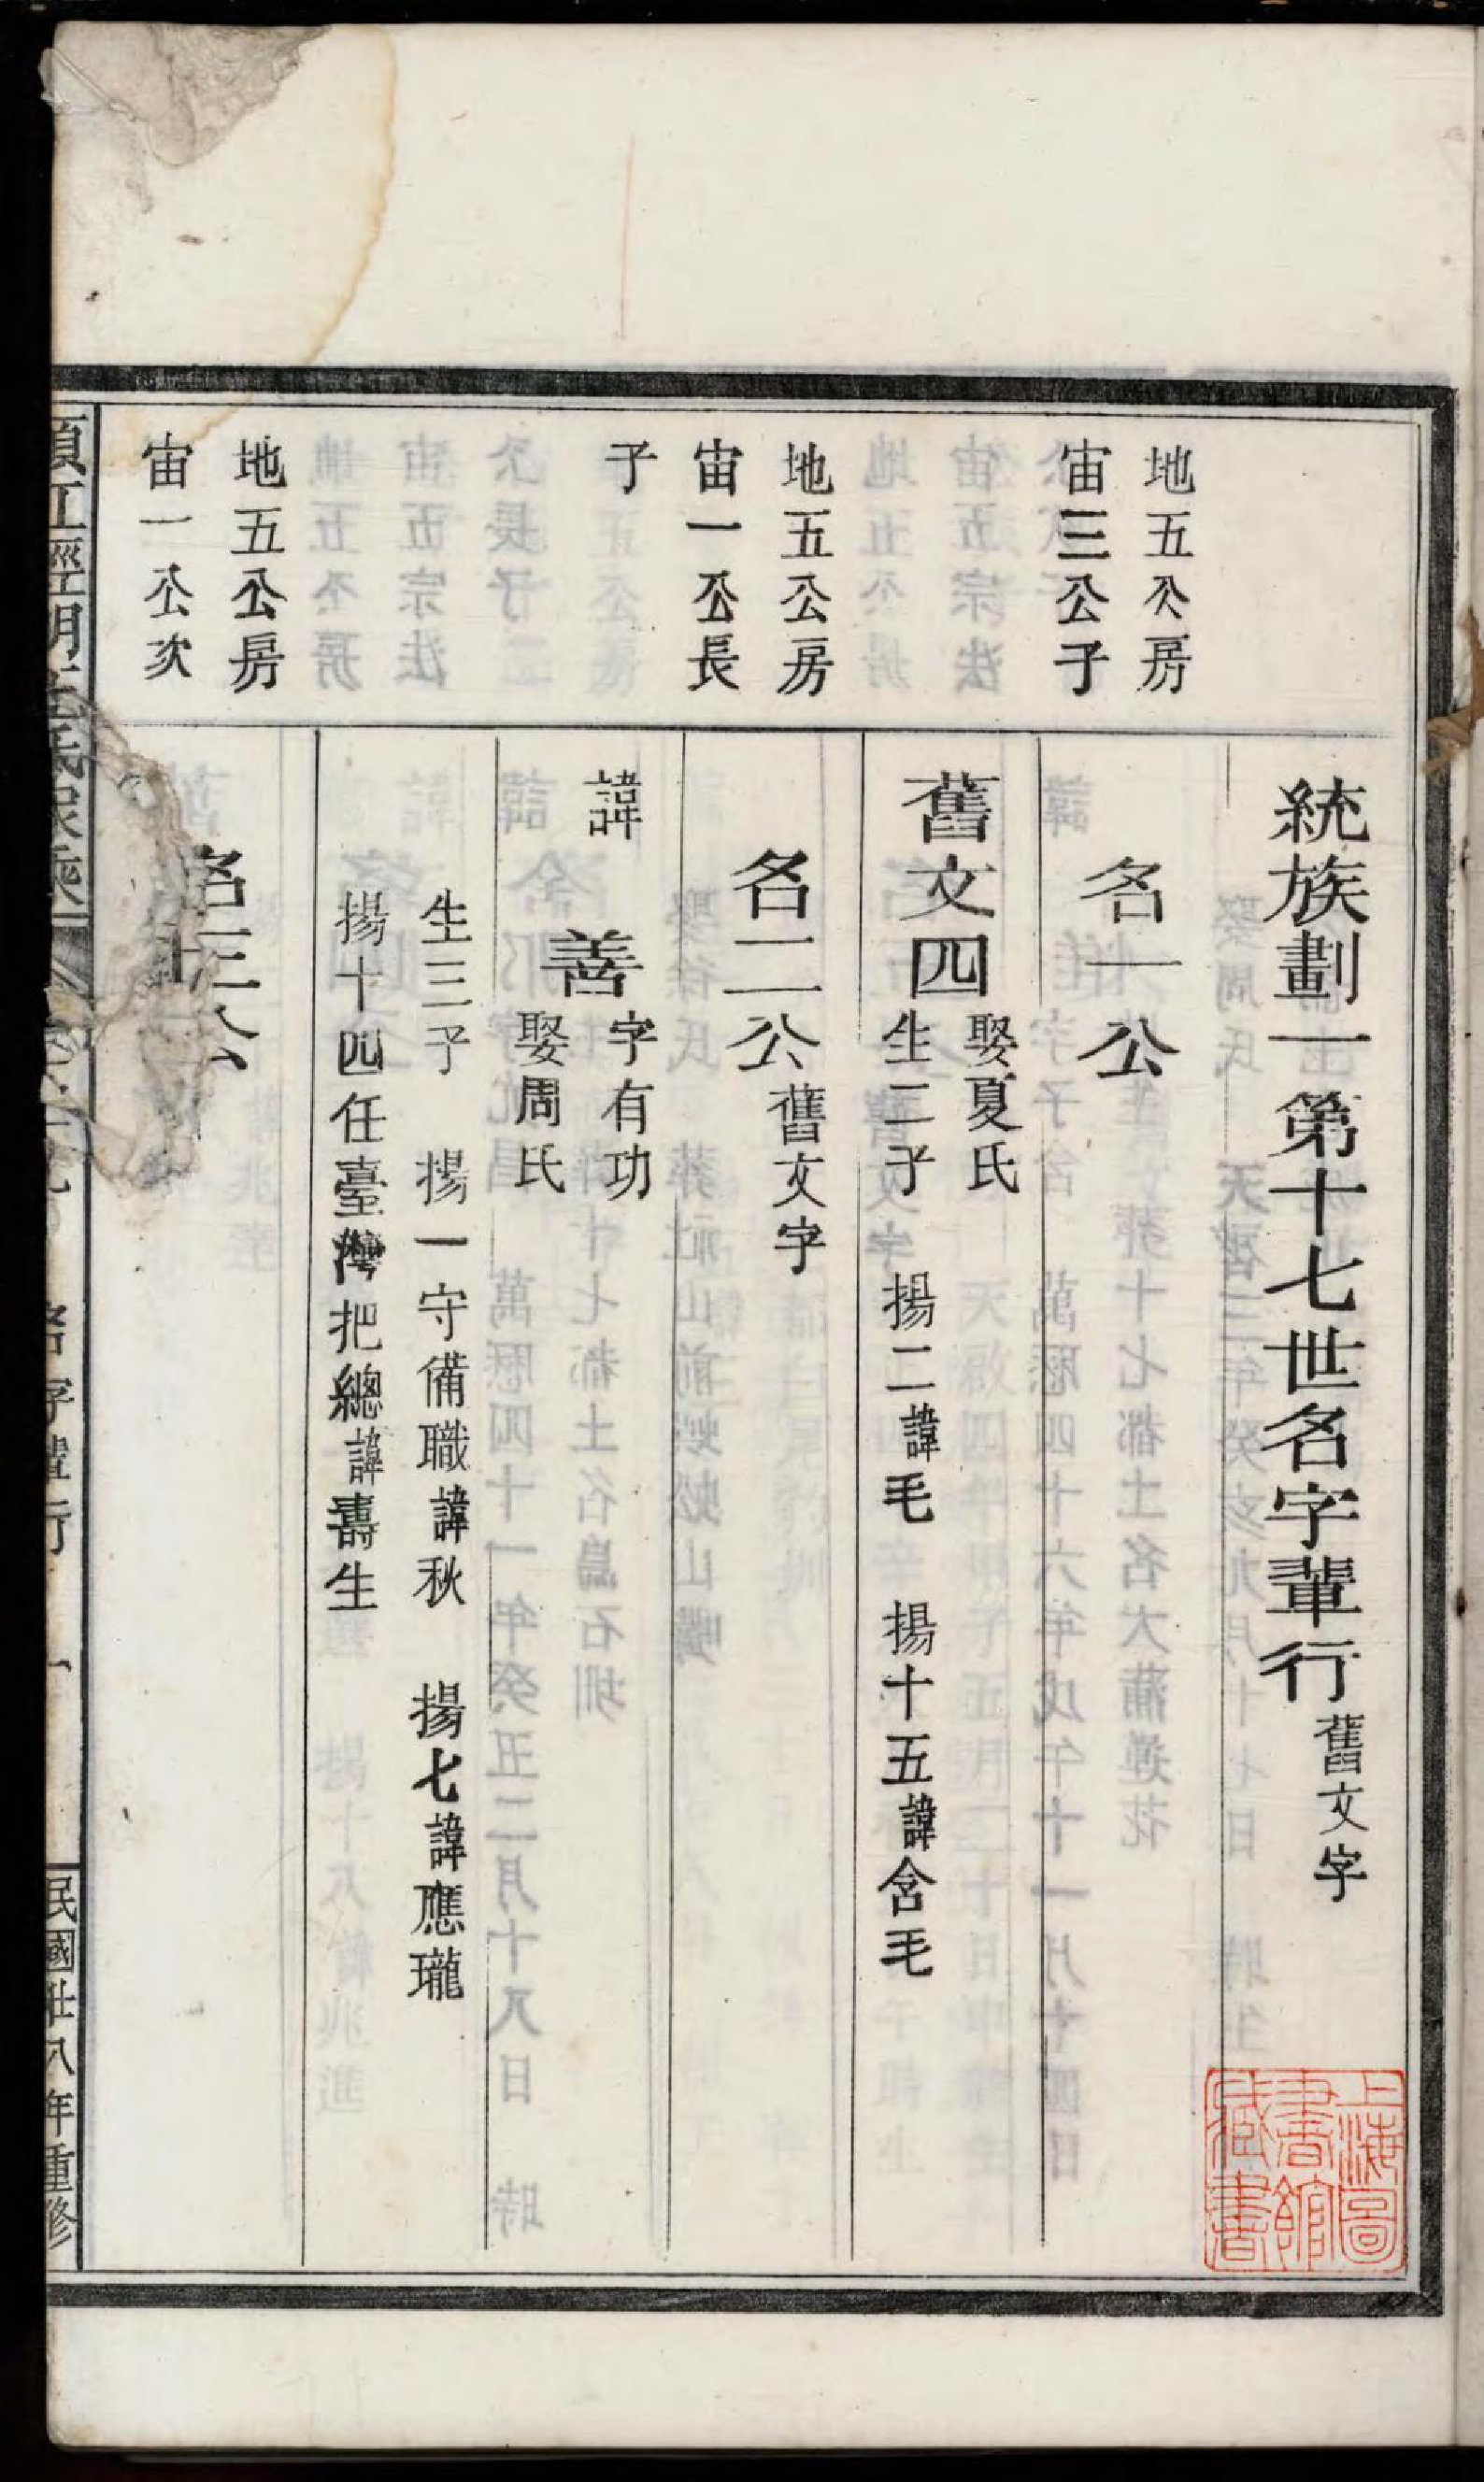 統族劃一第十七世名字輩行舊文字
地五公房
宙三公子
名一公
舊文四
娶夏氏
生二子 揚二諱毛 揚十五諱含毛
地五公房
宙一公長
子
名二公舊文字
諱 善
字有功
娶周氏
生三子 揚一守備職諱秋 揚七諱應瓏
揚十四任臺灣把總諱壽生
地五公房
宙一公次
名三公
名字輩行 一
民國廿八年重修
上海圖
書館
藏書